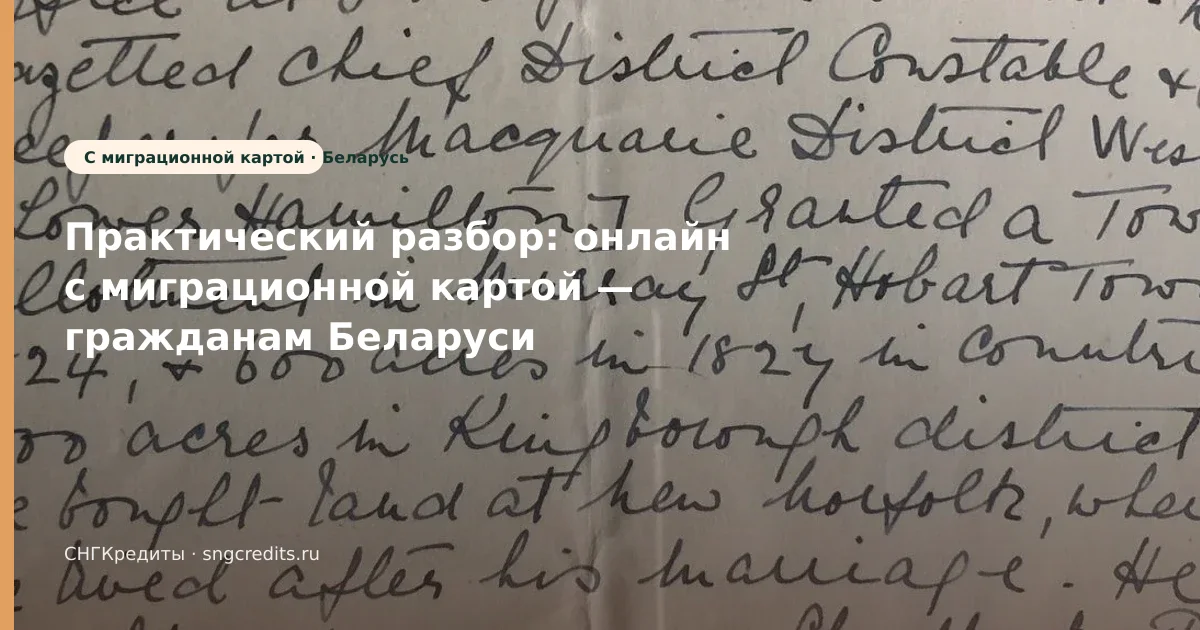 azetted Chief District Constable &
Macquarie District Wes
С миграционной картой · Беларусь
Lower Hamilton Granted a Tow
Практический разбор: онлайн
с миграционной картой —
St, Hobart Tow
гражданам Беларуси
24, & 600 acres in 1827 in
acres in Kingborough district
bought land at new norfolk, whe
СНГКредиты · sngcredits.ru
lived after his marriage. He